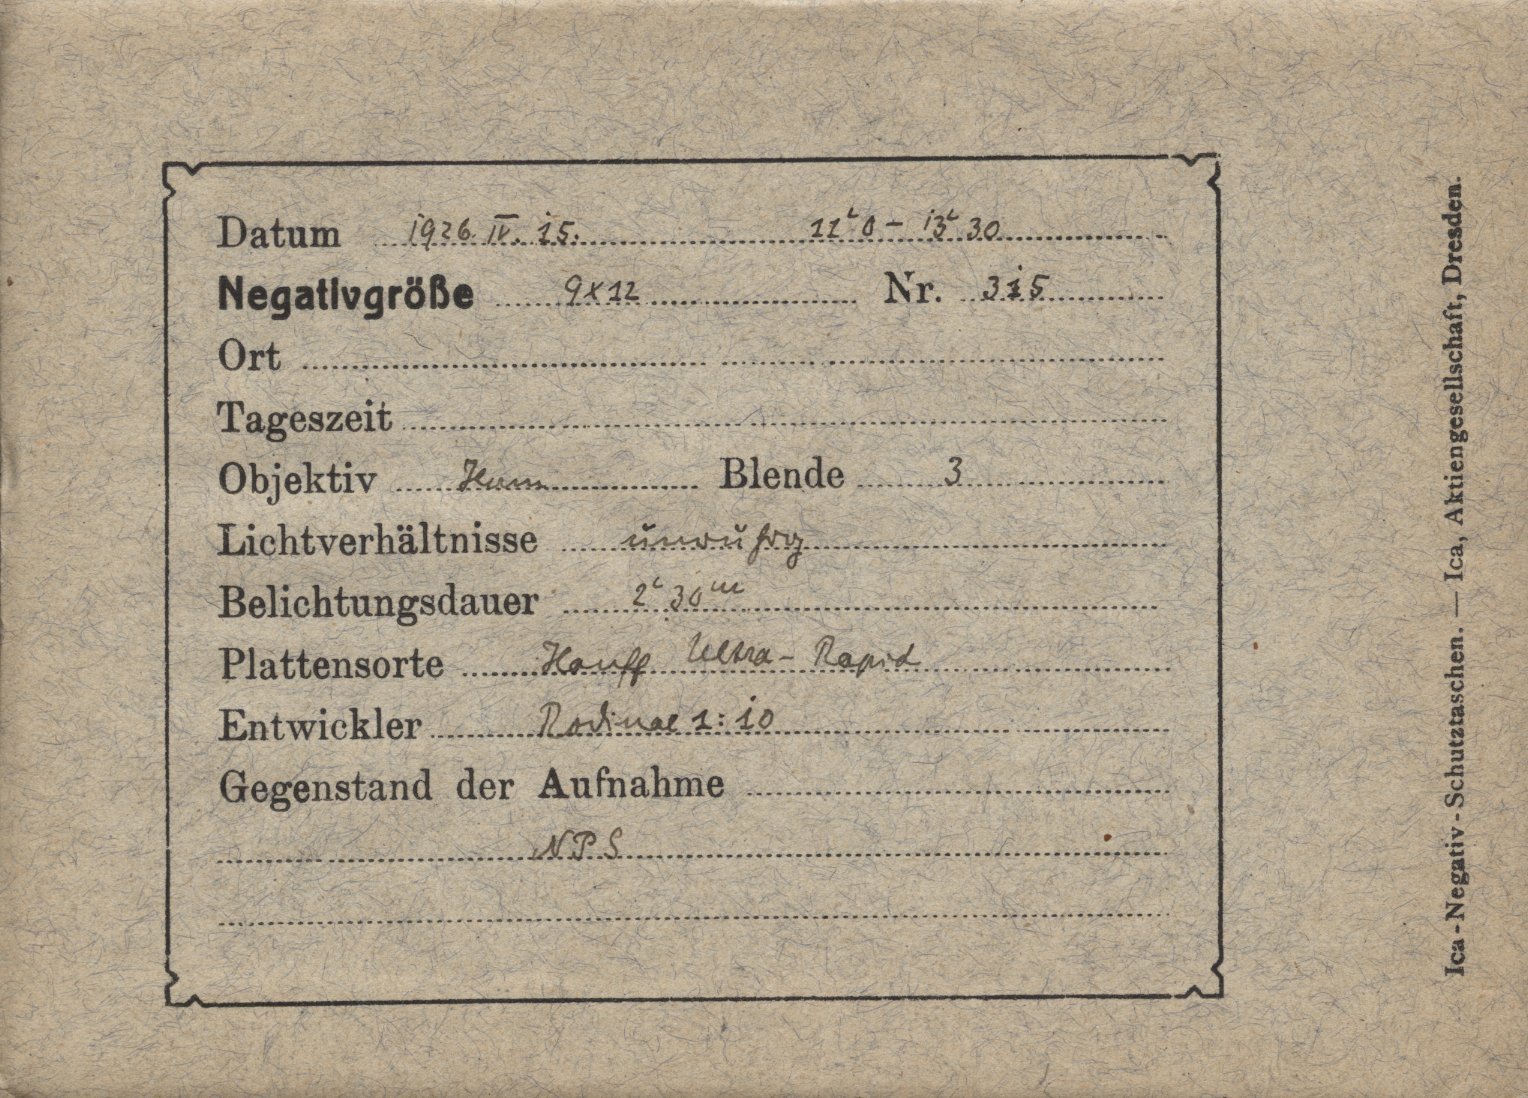 Datum 1926 IV. 15. 11ʰ 0 – 13ʰ 30
Negativgröße 9x12 Nr. 315
Ort
Tageszeit
Objektiv Blende 3
Lichtverhältnisse unruhig
Belichtungsdauer 2ʰ 30ᵐ
Plattensorte Hauff Ultra-Rapid
Entwickler Rodinal 1:10
Gegenstand der Aufnahme
NPS
Ica-Negativ-Schutztaschen. — Ica, Aktiengesellschaft, Dresden.